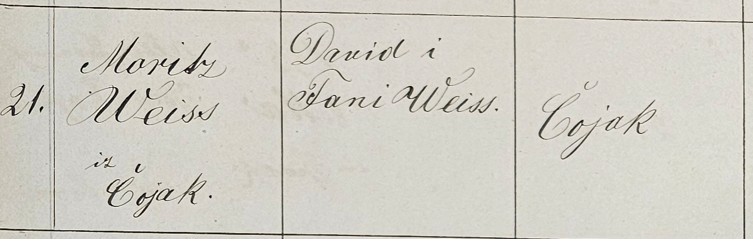 21.
Moritz
Weiss
iz
Čojak.
David i
Fani Weiss.
Čojak